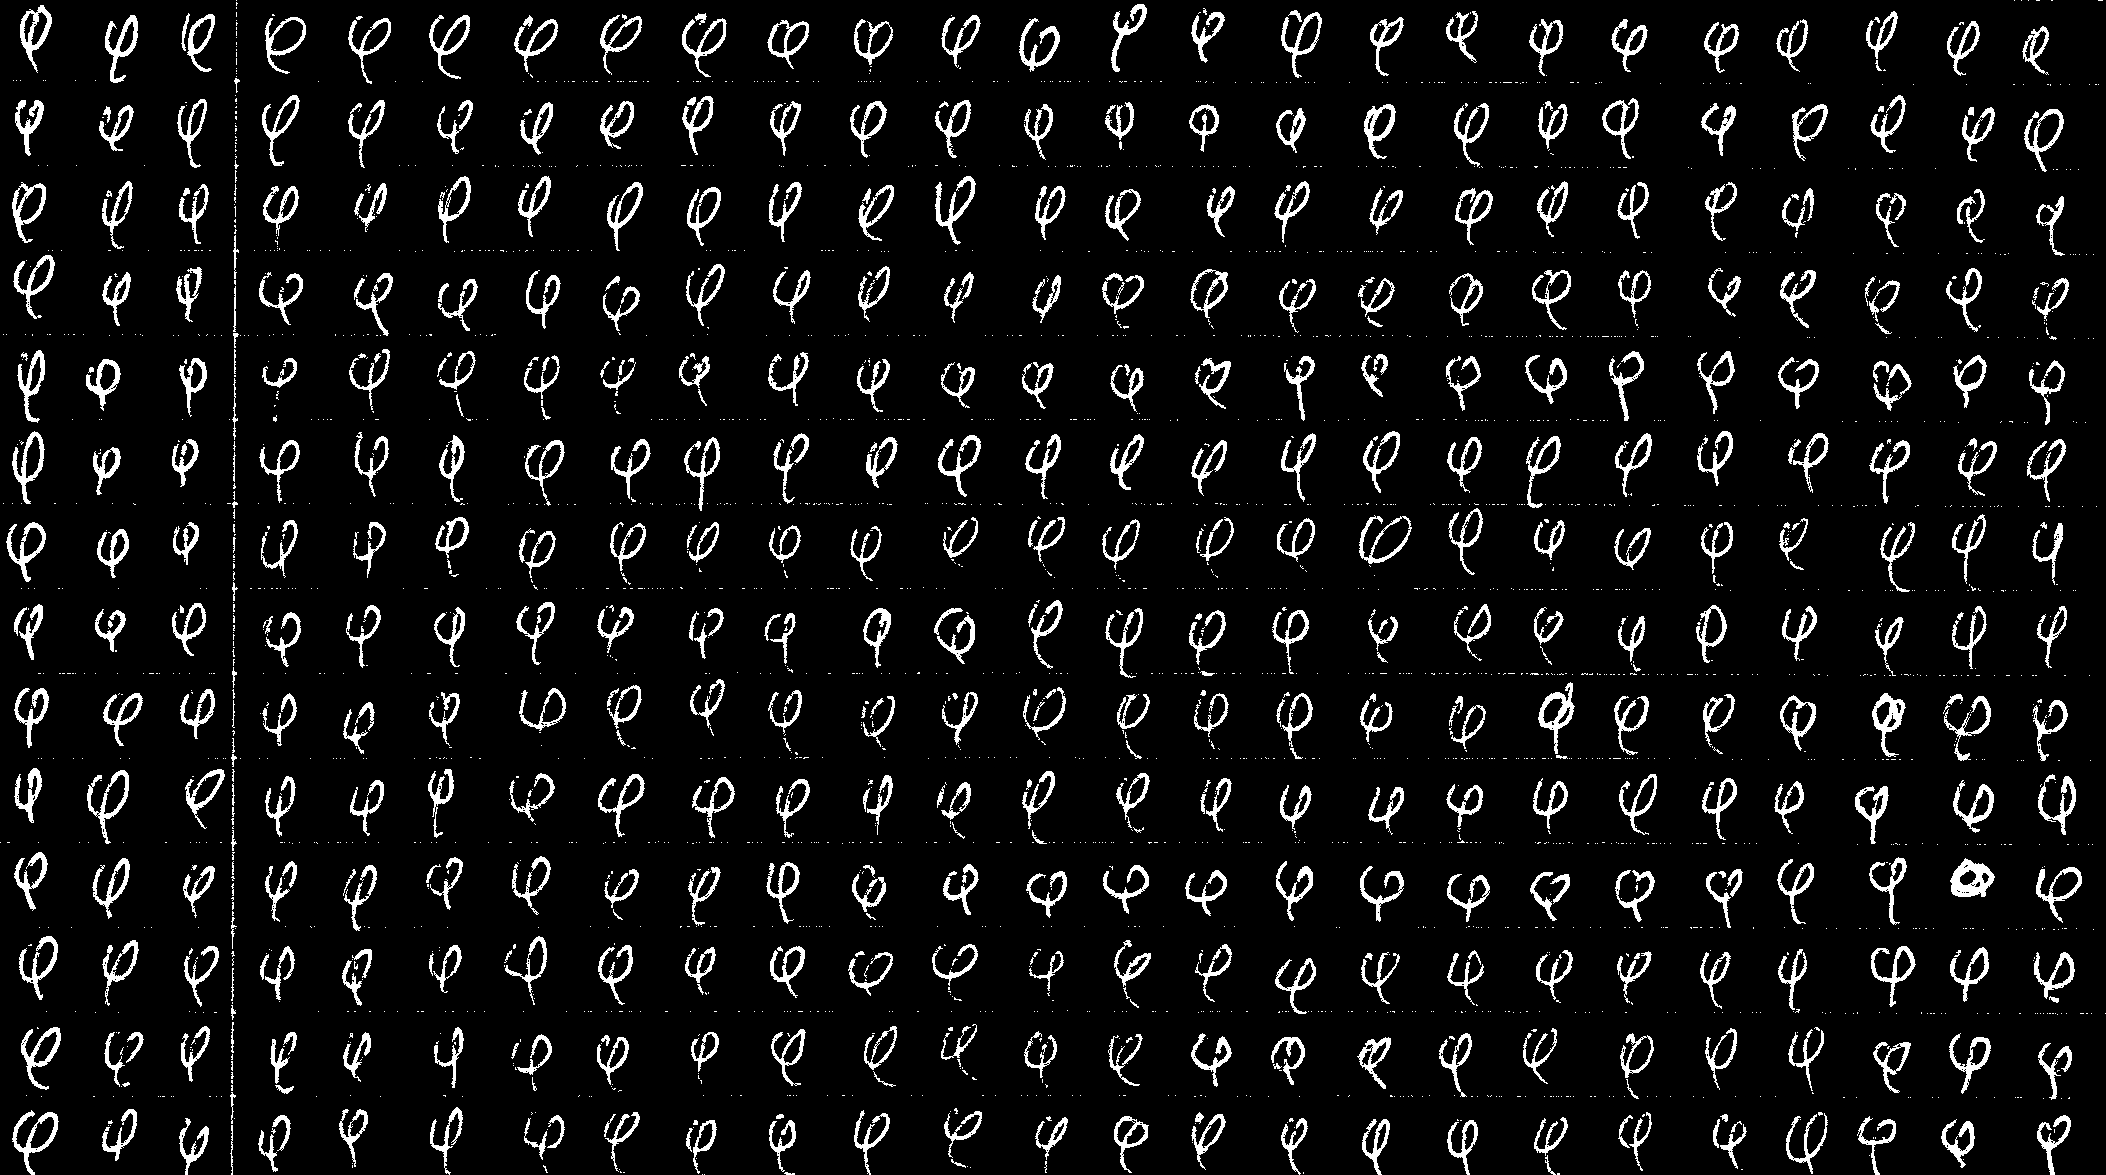 φ φ φ φ φ φ φ φ φ φ φ φ φ φ φ φ φ φ φ φ φ φ φ φ φ
φ φ φ φ φ φ φ φ φ φ φ φ φ φ φ φ φ φ φ φ φ φ φ φ φ
φ φ φ φ φ φ φ φ φ φ φ φ φ φ φ φ φ φ φ φ φ φ φ φ φ
φ φ φ φ φ φ φ φ φ φ φ φ φ φ φ φ φ φ φ φ φ φ φ φ φ
φ φ φ φ φ φ φ φ φ φ φ φ φ φ φ φ φ φ φ φ φ φ φ φ φ
φ φ φ φ φ φ φ φ φ φ φ φ φ φ φ φ φ φ φ φ φ φ φ φ φ
φ φ φ φ φ φ φ φ φ φ φ φ φ φ φ φ φ φ φ φ φ φ φ φ φ
φ φ φ φ φ φ φ φ φ φ φ φ φ φ φ φ φ φ φ φ φ φ φ φ φ
φ φ φ φ φ φ φ φ φ φ φ φ φ φ φ φ φ φ φ φ φ φ φ φ φ
φ φ φ φ φ φ φ φ φ φ φ φ φ φ φ φ φ φ φ φ φ φ φ φ φ
φ φ φ φ φ φ φ φ φ φ φ φ φ φ φ φ φ φ φ φ φ φ φ φ
φ φ φ φ φ φ φ φ φ φ φ φ φ φ φ φ φ φ φ φ φ φ φ φ φ
φ φ φ φ φ φ φ φ φ φ φ φ φ φ φ φ φ φ φ φ φ φ φ φ φ
φ φ φ φ φ φ φ φ φ φ φ φ φ φ φ φ φ φ φ φ φ φ φ φ φ